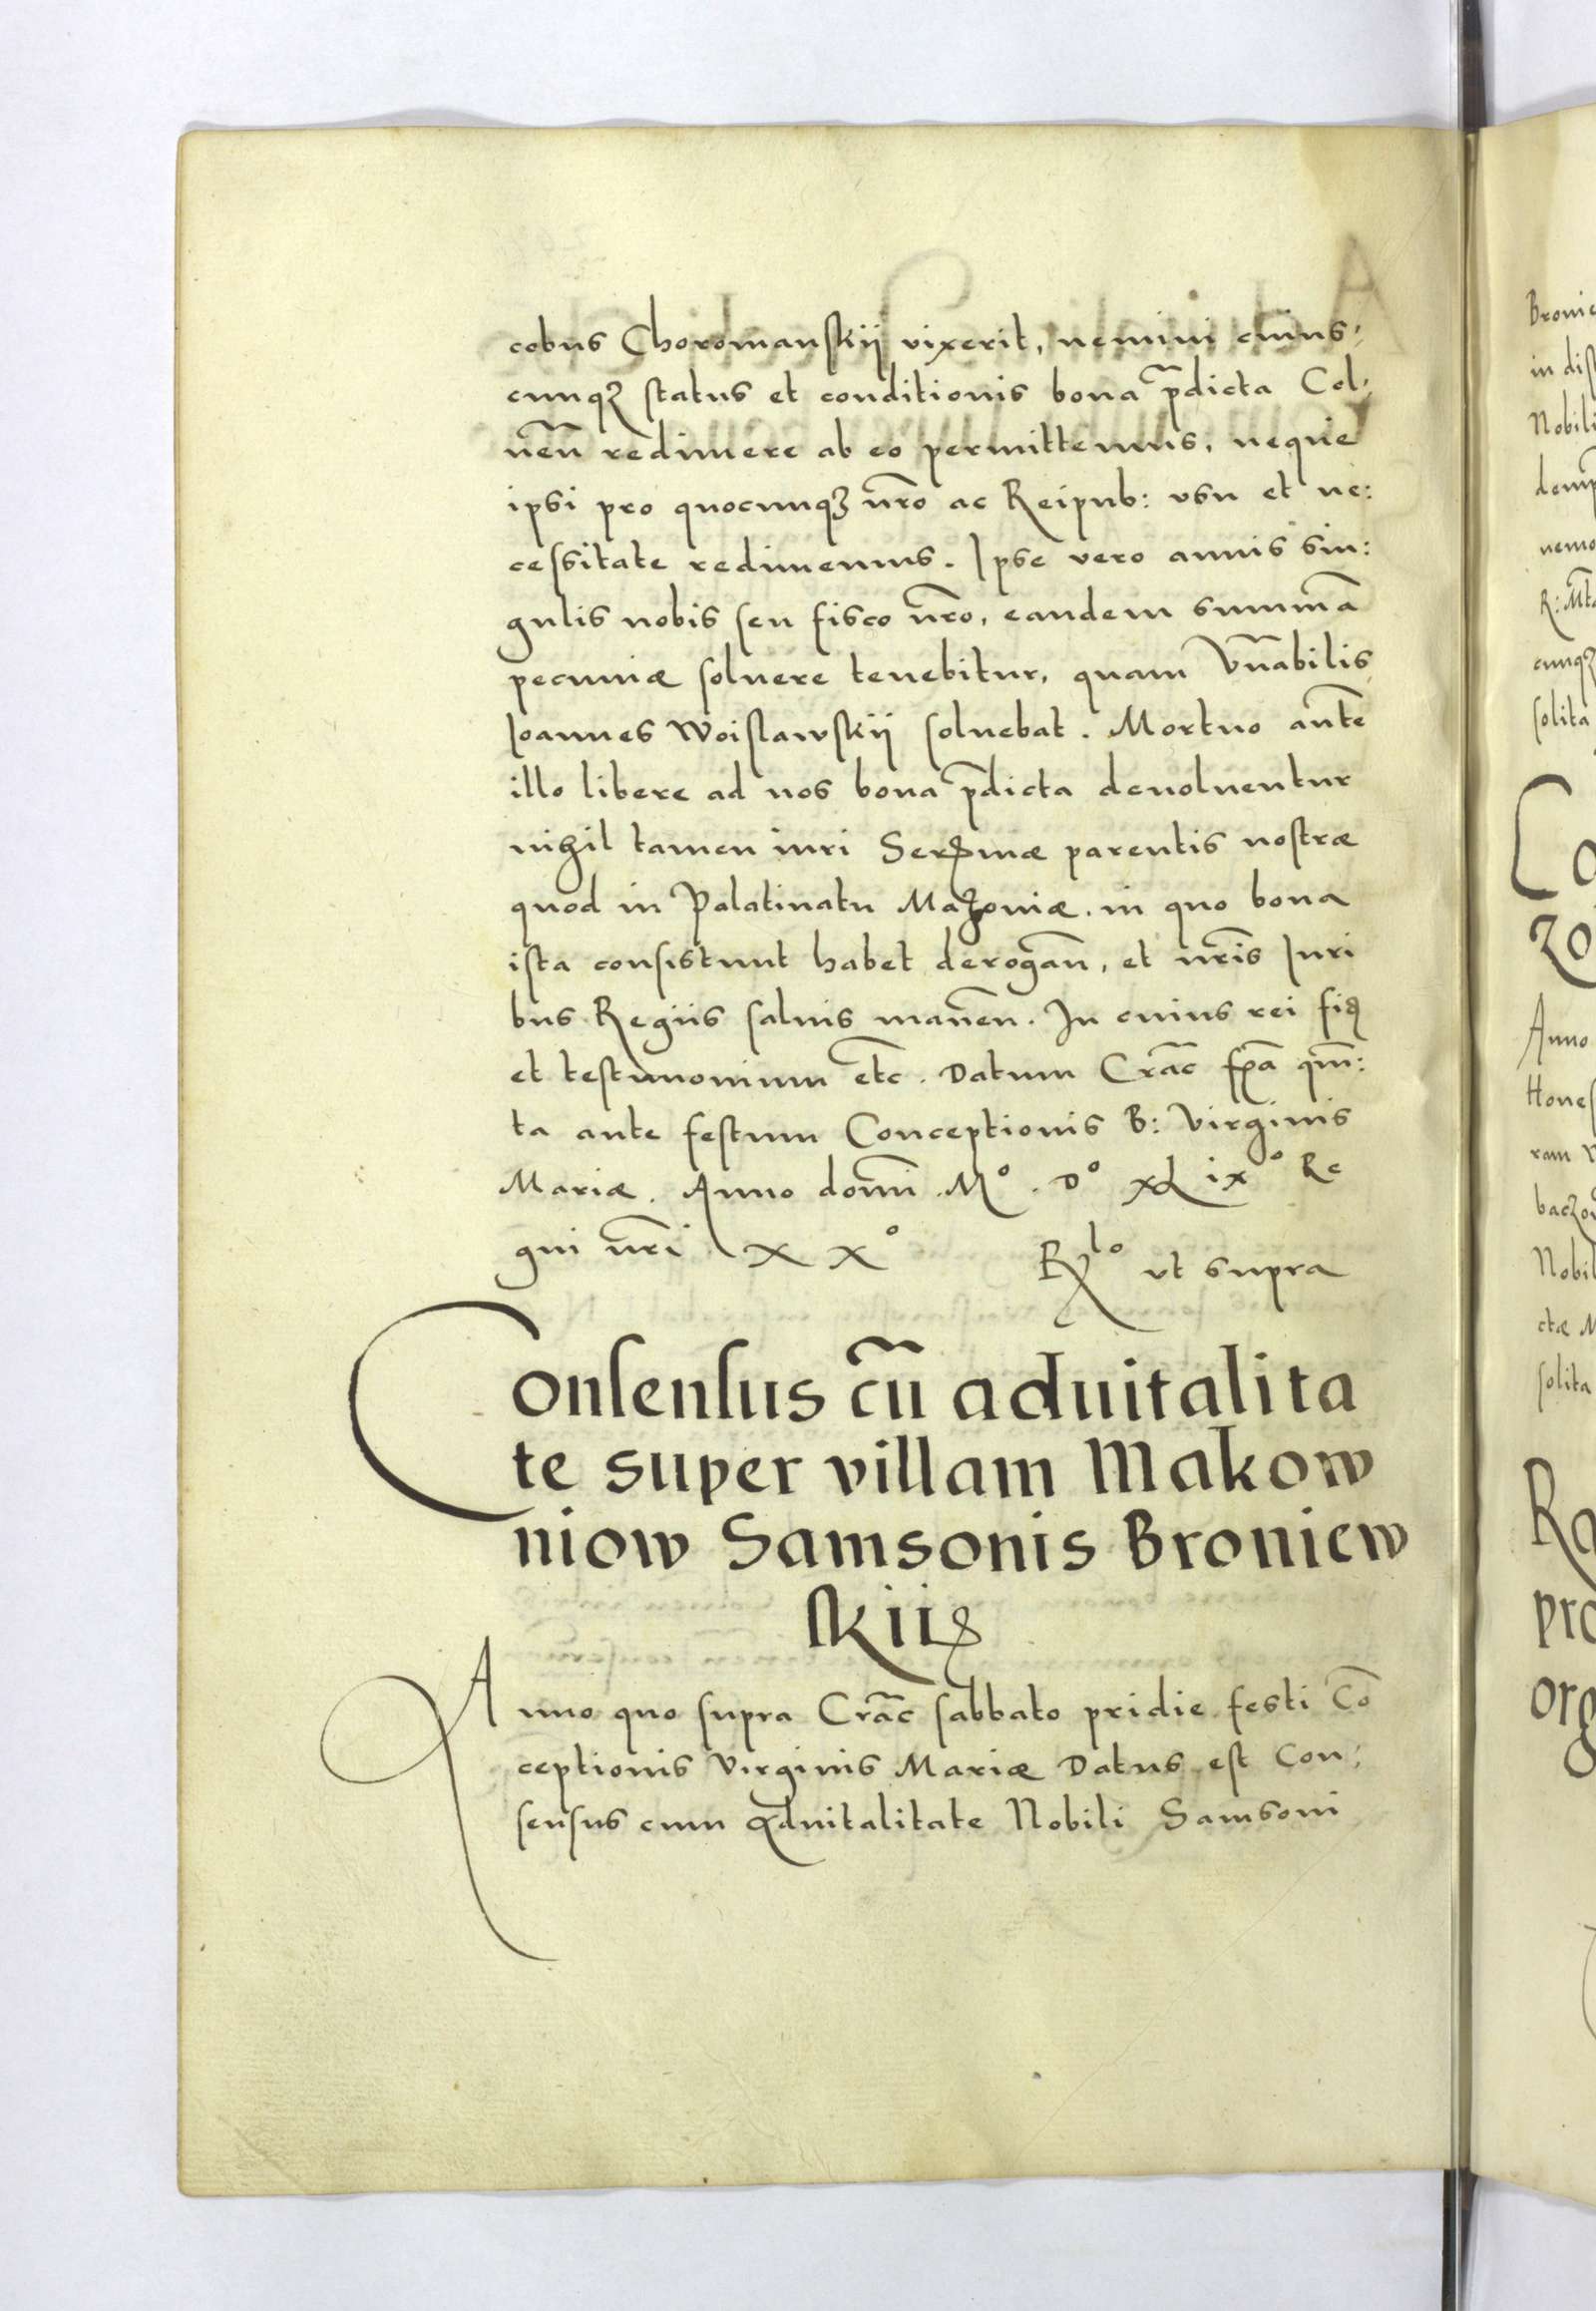 cobus Choromanskij vixerit, nemini cuius,
cunqꝫ status et conditionis bona p̃dicta Col,
neñ redimere ab eo permittemus, neque
ipsi pro quocunqꝫ ñro ac Reipub: vsu et ne:
cessitate redimemus. Ipse vero annis sin:
gulis nobis seu fisco ñro, eandem summã
pecuniæ soluere tenebitur, quam Vñabilis
Joannes Woislawskij soluebat. Mortuo aũte
illo libere ad nos bona p̃dicta deuoluentur
nihil tamen iuri Serꝫmæ parentis nostræ
quod in Palatinatu Mazouiæ. in quo bona
ista consistunt habet derogañ, et ñris Juri
bus Regiis saluis maneñ. In cuius rei fiꝺ
et testimonium etc̃. Datum Crãc fp̃a qũi:
ta ante festum Conceptionis B: Virginis
Mariæ. Anno domĩ .Mº. Dº xLixº Re
gni ñri xxº Rlo vt supra
Consensus cũ aduitalita
te super villam Makow
niow Samsonis Broniew
skii
Anno quo supra Crãc sabbato pridie festi Cõ
ceptionis Virginis Mariæ Datus est Con,
sensus cum aduitalitate Nobili Samsoni
Bronie
in dis
Nobili
demp̃
nemo
R: Mtã
cunqꝫ
solita
Ca
zo
Anno
Hones
ram
baczow
Nobil
ctæ M
solita
Ra
pro
org